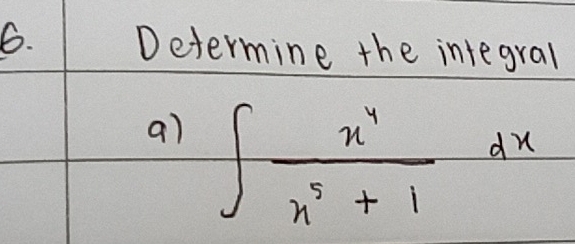 6. Determine the integral
a) ∫ x⁴ / x⁵ + 1 dx